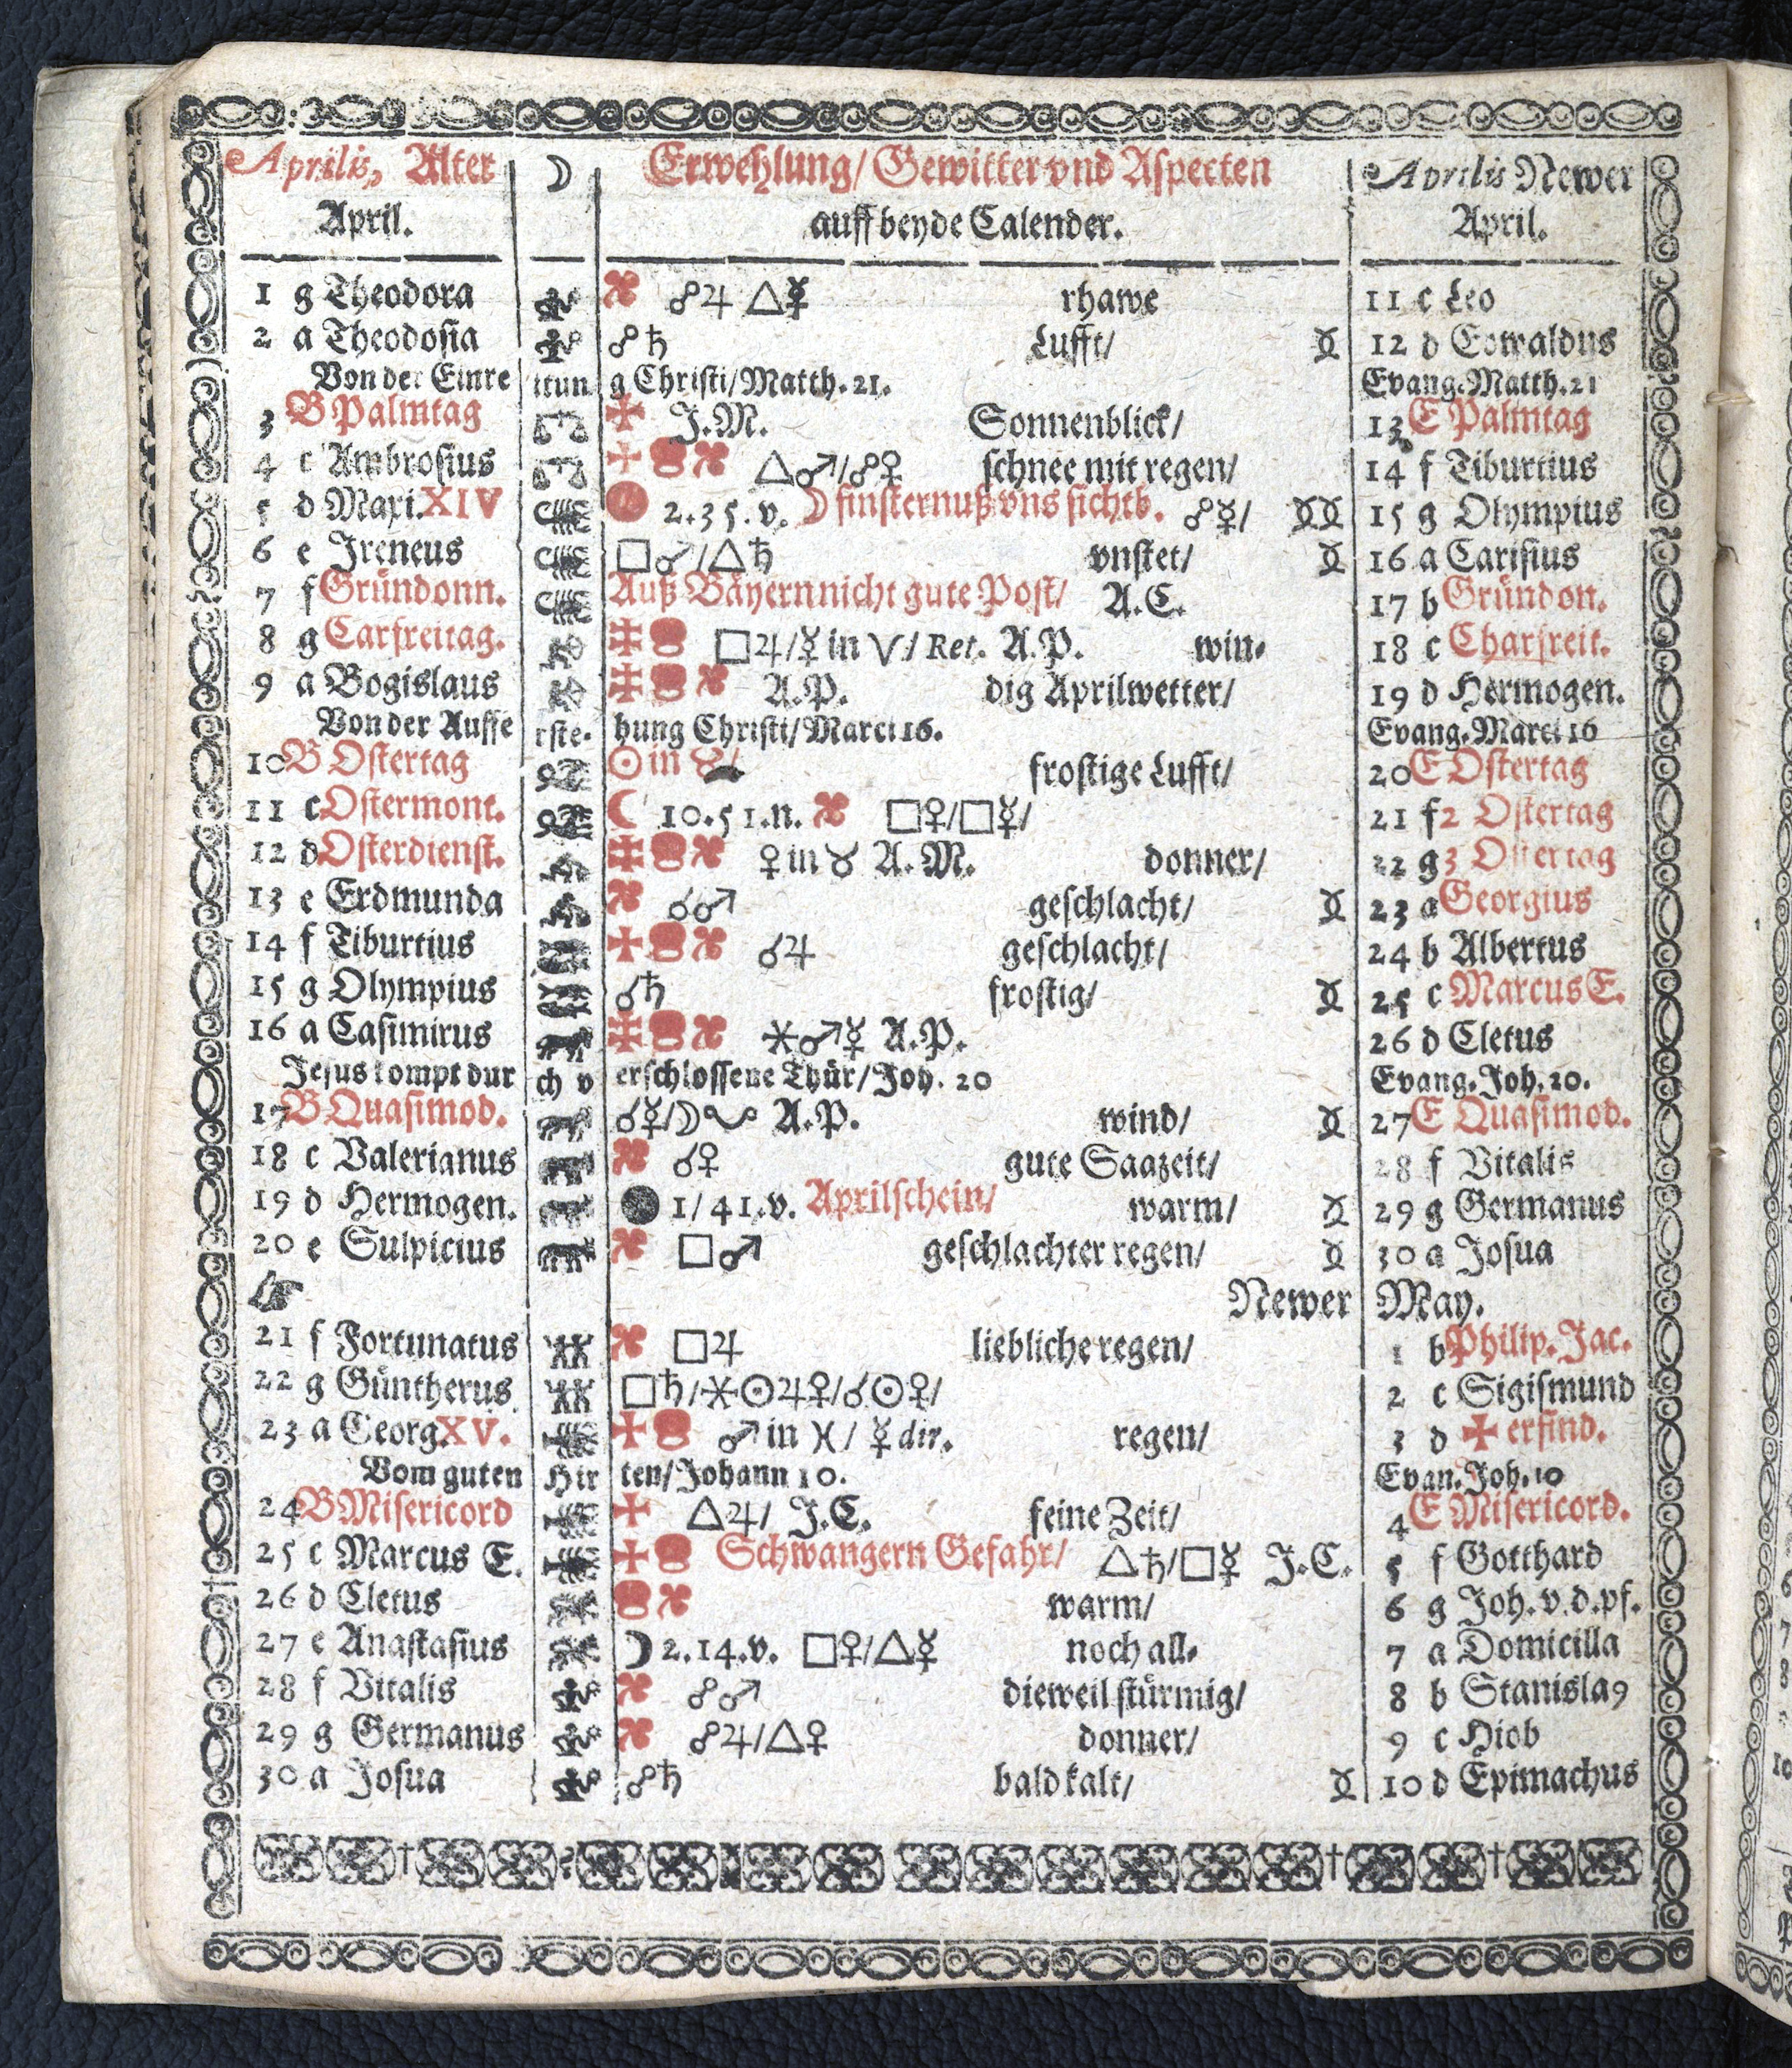 Aprilis, Alter ☽ Erwehlung/ Gewitter vnd Aspecten Aprilis Newer
April. auff beyde Calender. April.
1 g Theodora ☍♃ △☿ rhawe 11 c Leo
2 a Theodosia ☍♄ Lufft/ 12 d Eowaldus
Von der Einre itun g Christi/ Matth. 21. Evang. Matth. 21
3 B Palmtag J.M. Sonnenblick/ 13 E Palmtag
4 c Ambrosius △♂/☍♀ schnee mit regen/ 14 f Tiburtius
5 d Maxi. XIV 2.35.v. ☽ finsternuß vns sichtb. ☍☿/ 15 g Olympius
6 e Ireneus □♂/△♄ vnstet/ 16 a Carisius
7 f Gründonn. Auß Bäyern nicht gute Post/ A.C. 17 b Gründon.
8 g Carfreitag. □♃/☿ in ♈/ Ret. A.P. win- 18 c Charfreit.
9 a Bogislaus A.P. dig Aprilwetter/ 19 d Hermogen.
Von der Auffe rste- hung Christi/ Marci 16. Evang. Marci 16
10 B Ostertag ☉ in ♉/ frostige Lufft/ 20 E Ostertag
11 c Ostermont. ☾ 10.51.n. □♀/□☿/ 21 f 2 Ostertag
12 d Osterdienst. ♀ in ♉ A.M. donner/ 22 g 3 Ostertag
13 e Erdmunda ☌♂ geschlacht/ 23 a Georgius
14 f Tiburtius ☌♃ geschlacht/ 24 b Albertus
15 g Olympius ☌♄ frostig/ 25 c Marcus E.
16 a Casimirus ⚹♂☿ A.P. 26 d Cletus
Jesus kompt dur ch v erschlossene Thür/ Joh. 20 Evang. Joh. 20.
17 B Quasimod. ☌☿/☽ A.P. wind/ 27 E Quasimod.
18 c Valerianus ☌♀ gute Saazeit/ 28 f Vitalis
19 d Hermogen. ● 1/41.v. Aprilschein/ warm/ 29 g Germanus
20 e Sulpicius □♂ geschlachter regen/ 30 a Josua
☞ Newer May.
21 f Fortunatus □♃ liebliche regen/ 1 b Philip. Jac.
22 g Güntherus □♄/⚹☉♃♀/☌☉♀/ 2 c Sigismund
23 a Georg. XV. ♂ in ♓/ ☿ dir. regen/ 3 d ✠ erfind.
Vom guten Hir ten/ Johann 10. Evan. Joh. 10
24 B Misericord △♃/ J.C. feine Zeit/ 4 E Misericord.
25 c Marcus E. Schwangern Gefahr/ △♄/□☿ J.C. 5 f Gotthard
26 d Cletus warm/ 6 g Joh. v. d. pf.
27 e Anastasius ☽ 2.14.v. □♀/△☿ noch all- 7 a Domicilla
28 f Vitalis ☍♂ dieweil stürmig/ 8 b Stanisla9
29 g Germanus ☍♃/△♀ donner/ 9 c Hiob
30 a Josua ☍♄ bald kalt/ 10 d Epimachus